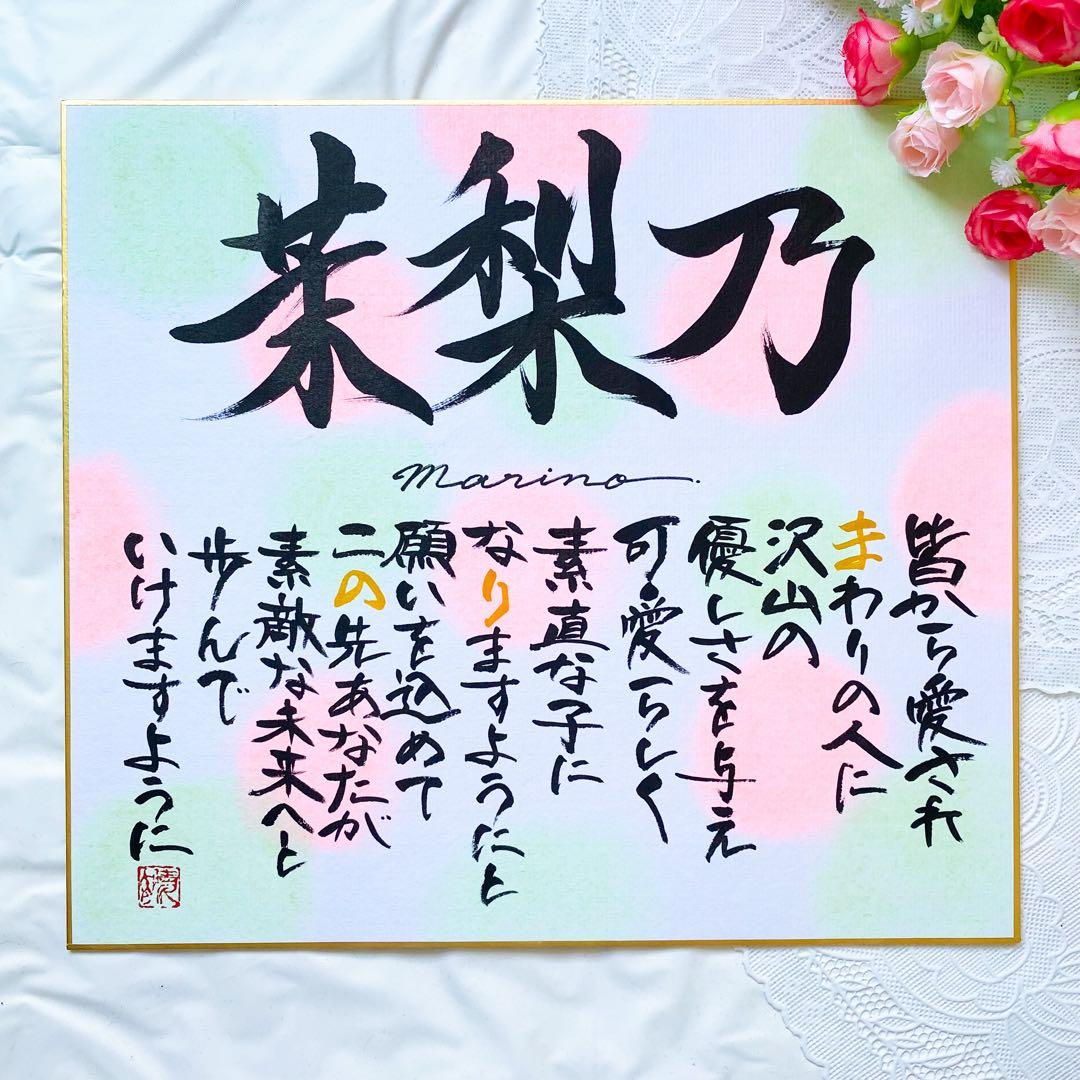 茉梨乃
marino
皆から愛され
まわりの人に
沢山の
優しさを与え
可愛らしく
素直な子に
なりますようにと
願いを込めて
この先あなたが
素敵な未来へと
歩んで
いけますように